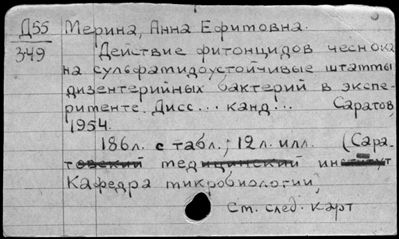 Д55 Мерина, Анна Ефимовна.
349 Действие фитонцидов чеснока
на сульфатидоустойчивые штаммы
дизентерийных бактерий в экспе-
рименте. Дисс... канд... Саратов,
1954.
186л. с табл.; 12л. илл. (Сара-
товский медицинский институт
Кафедра микробиологии)
См. след. карт